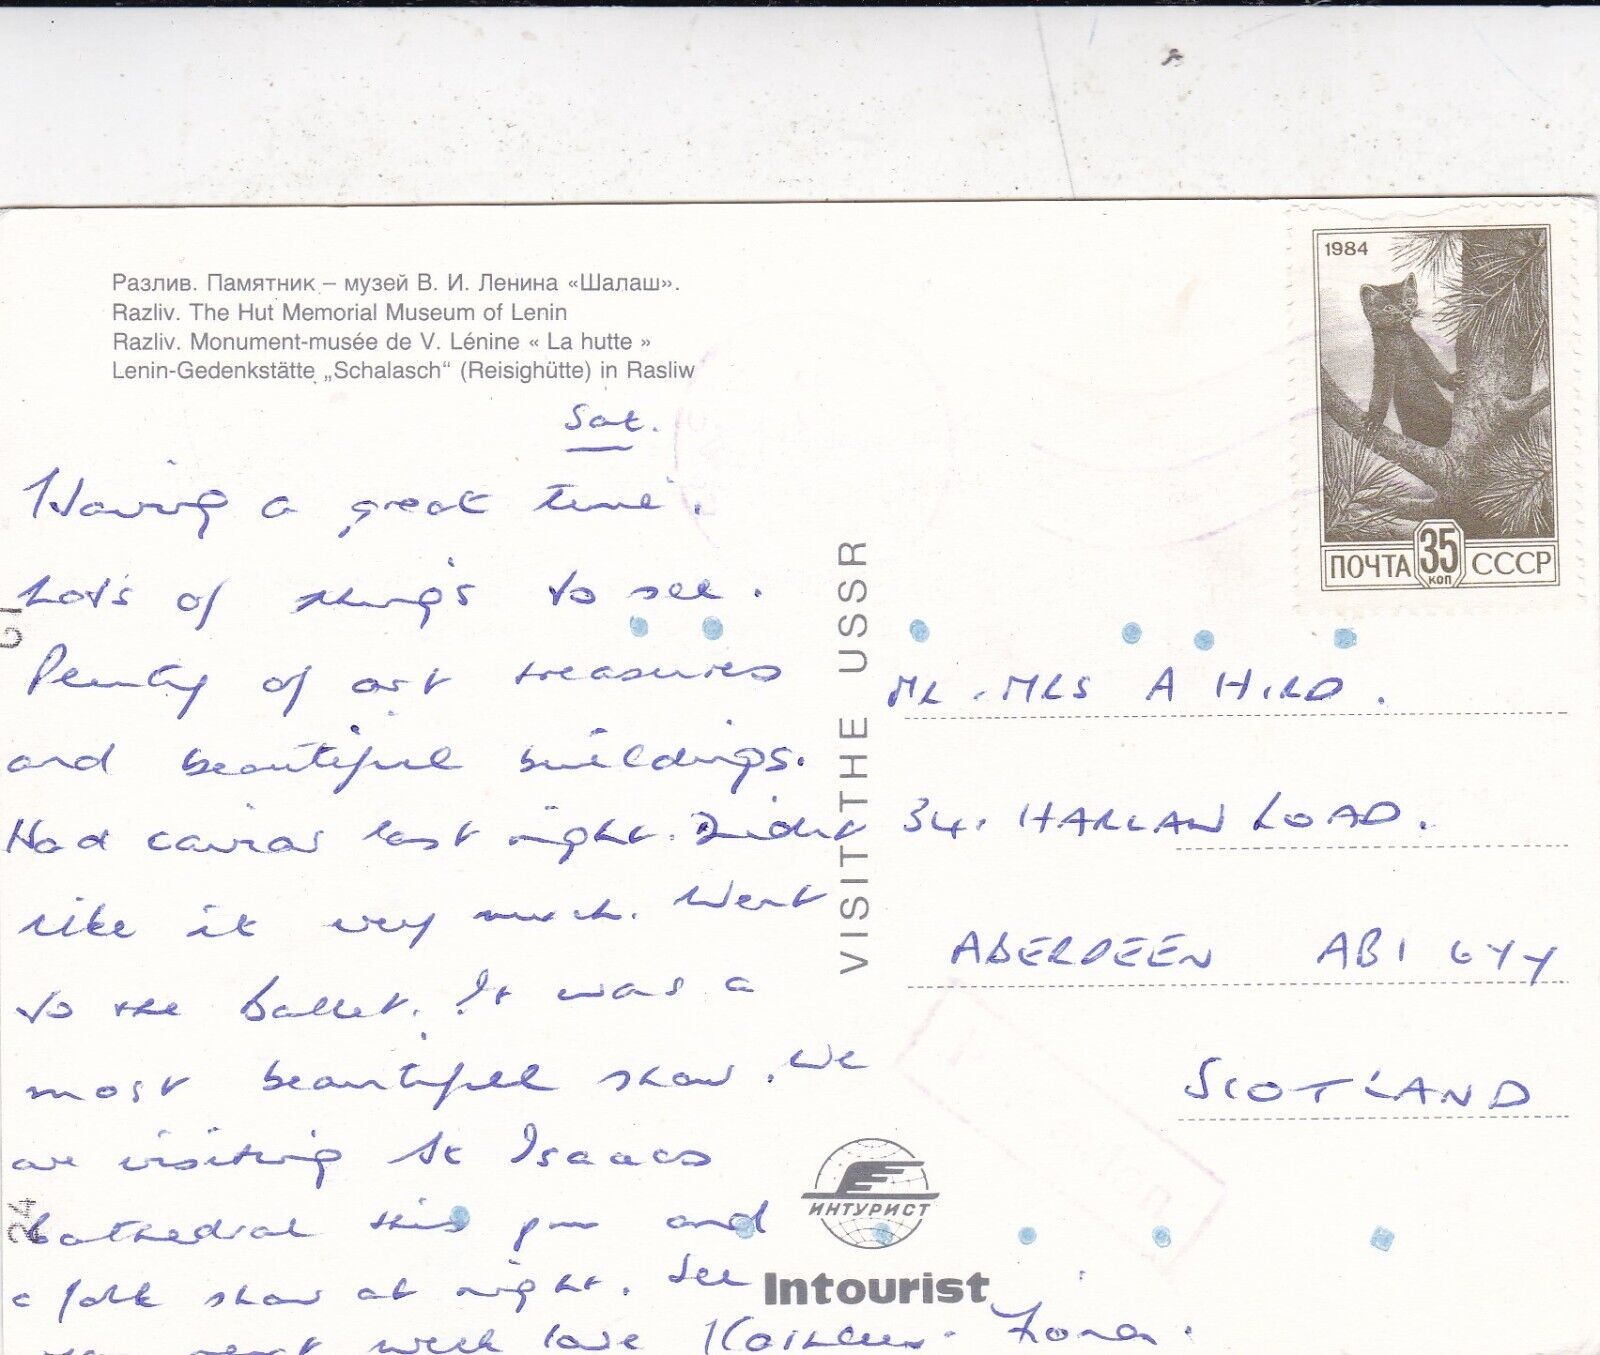 Разлив. Памятник – музей В. И. Ленина «Шалаш».
Razliv. The Hut Memorial Museum of Lenin
Razliv. Monument-musée de V. Lénine « La hutte »
Lenin-Gedenkstätte „Schalasch“ (Reisighütte) in Rasliw
Sat.
Having a great time.
Lots of things to see.
Plenty of art treasures
and beautiful buildings.
Had caviar last night. Didnt
like it very much. Went
to the ballet. It was a
most beautiful show. We
are visiting St Isaacs
Cathedral this pm and
a folk show at night. See
you next week love Kathleen. Fiona.
VISIT THE USSR
1984
ПОЧТА 35 КОП СССР
MR. MRS A HIRD.
34, HARLAW ROAD.
ABERDEEN AB1 6YY
SCOTLAND
ИНТУРИСТ
Intourist
24